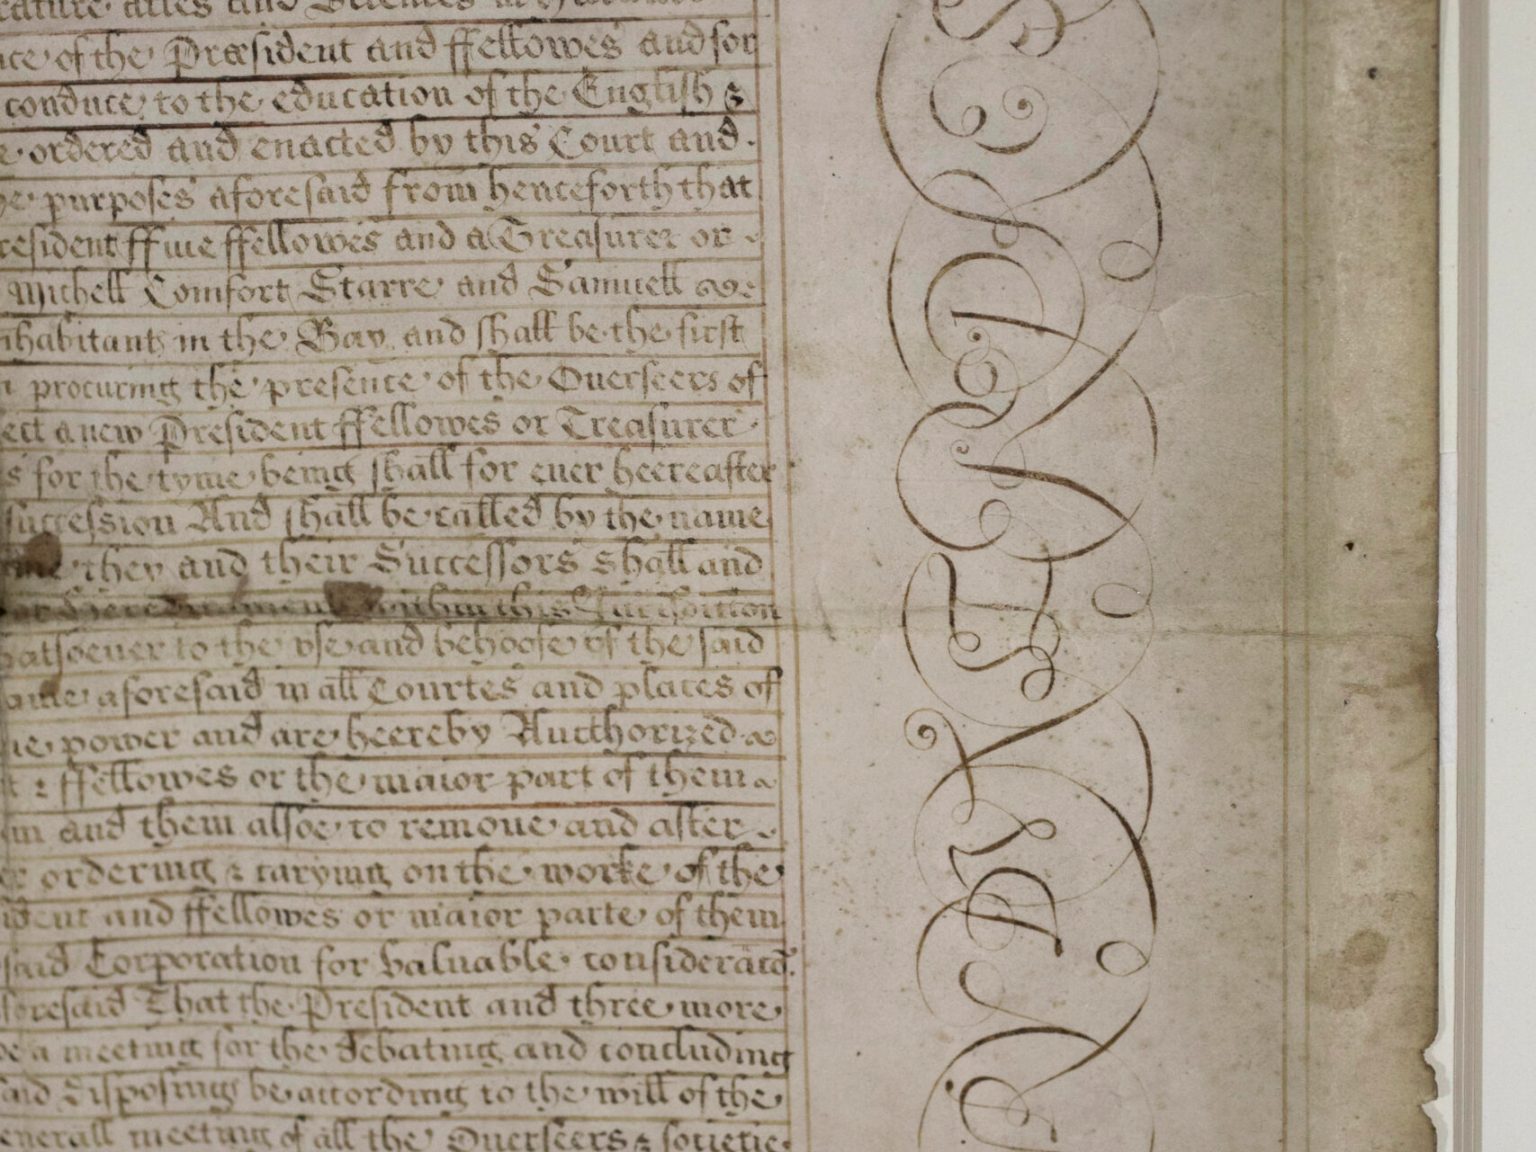 rature artes and Sciences in Harvard
nce of the Præsident and ffellowes and for
conduce to the education of the English &
e ordered and enacted by this Court and
he purposes aforesaid from henceforth that
resident ffiue ffellowes and a Treasurer or
Michell Comfort Starre and Samuell
nhabitants in the Bay and shall be the first
n procuring the presence of the Ouerseers of
lect a new President ffellowes or Treasurer
s for the tyme being shall for euer heereafter
succession And shall be called by the name
ame they and their Successors shall and
or Hereditaments within this Iurisdiction
hatsoeuer to the vse and behoofe of the said
ame aforesaid in all Courtes and places of
ue power and are heereby Aucthorized
t & ffellowes or the maior part of them
him and them allsoe to remoue and after
er ordering & carying on the worke of the
ident and ffellowes or maior parte of them
said Corporation for valuable consideracō
aforesaid That the President and three more
be a meeting for the debating and concluding
said disposing be according to the will of the
enerall meeting of all the Ouerseers & societie